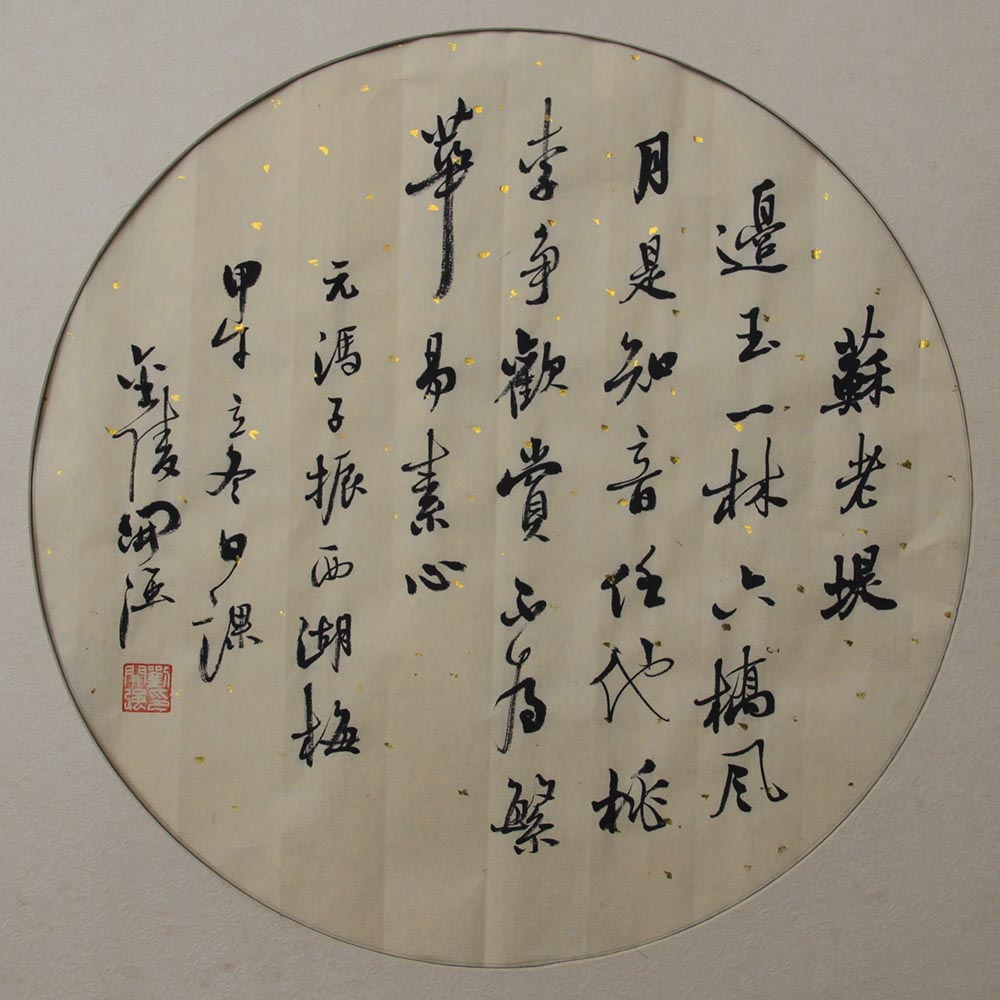 蘇老堤
邊玉一林六橋風
月是知音任他桃
李争歡賞不為繁
華易素心
元馮子振西湖梅
甲午立冬日課
金陵開强
劉印開強